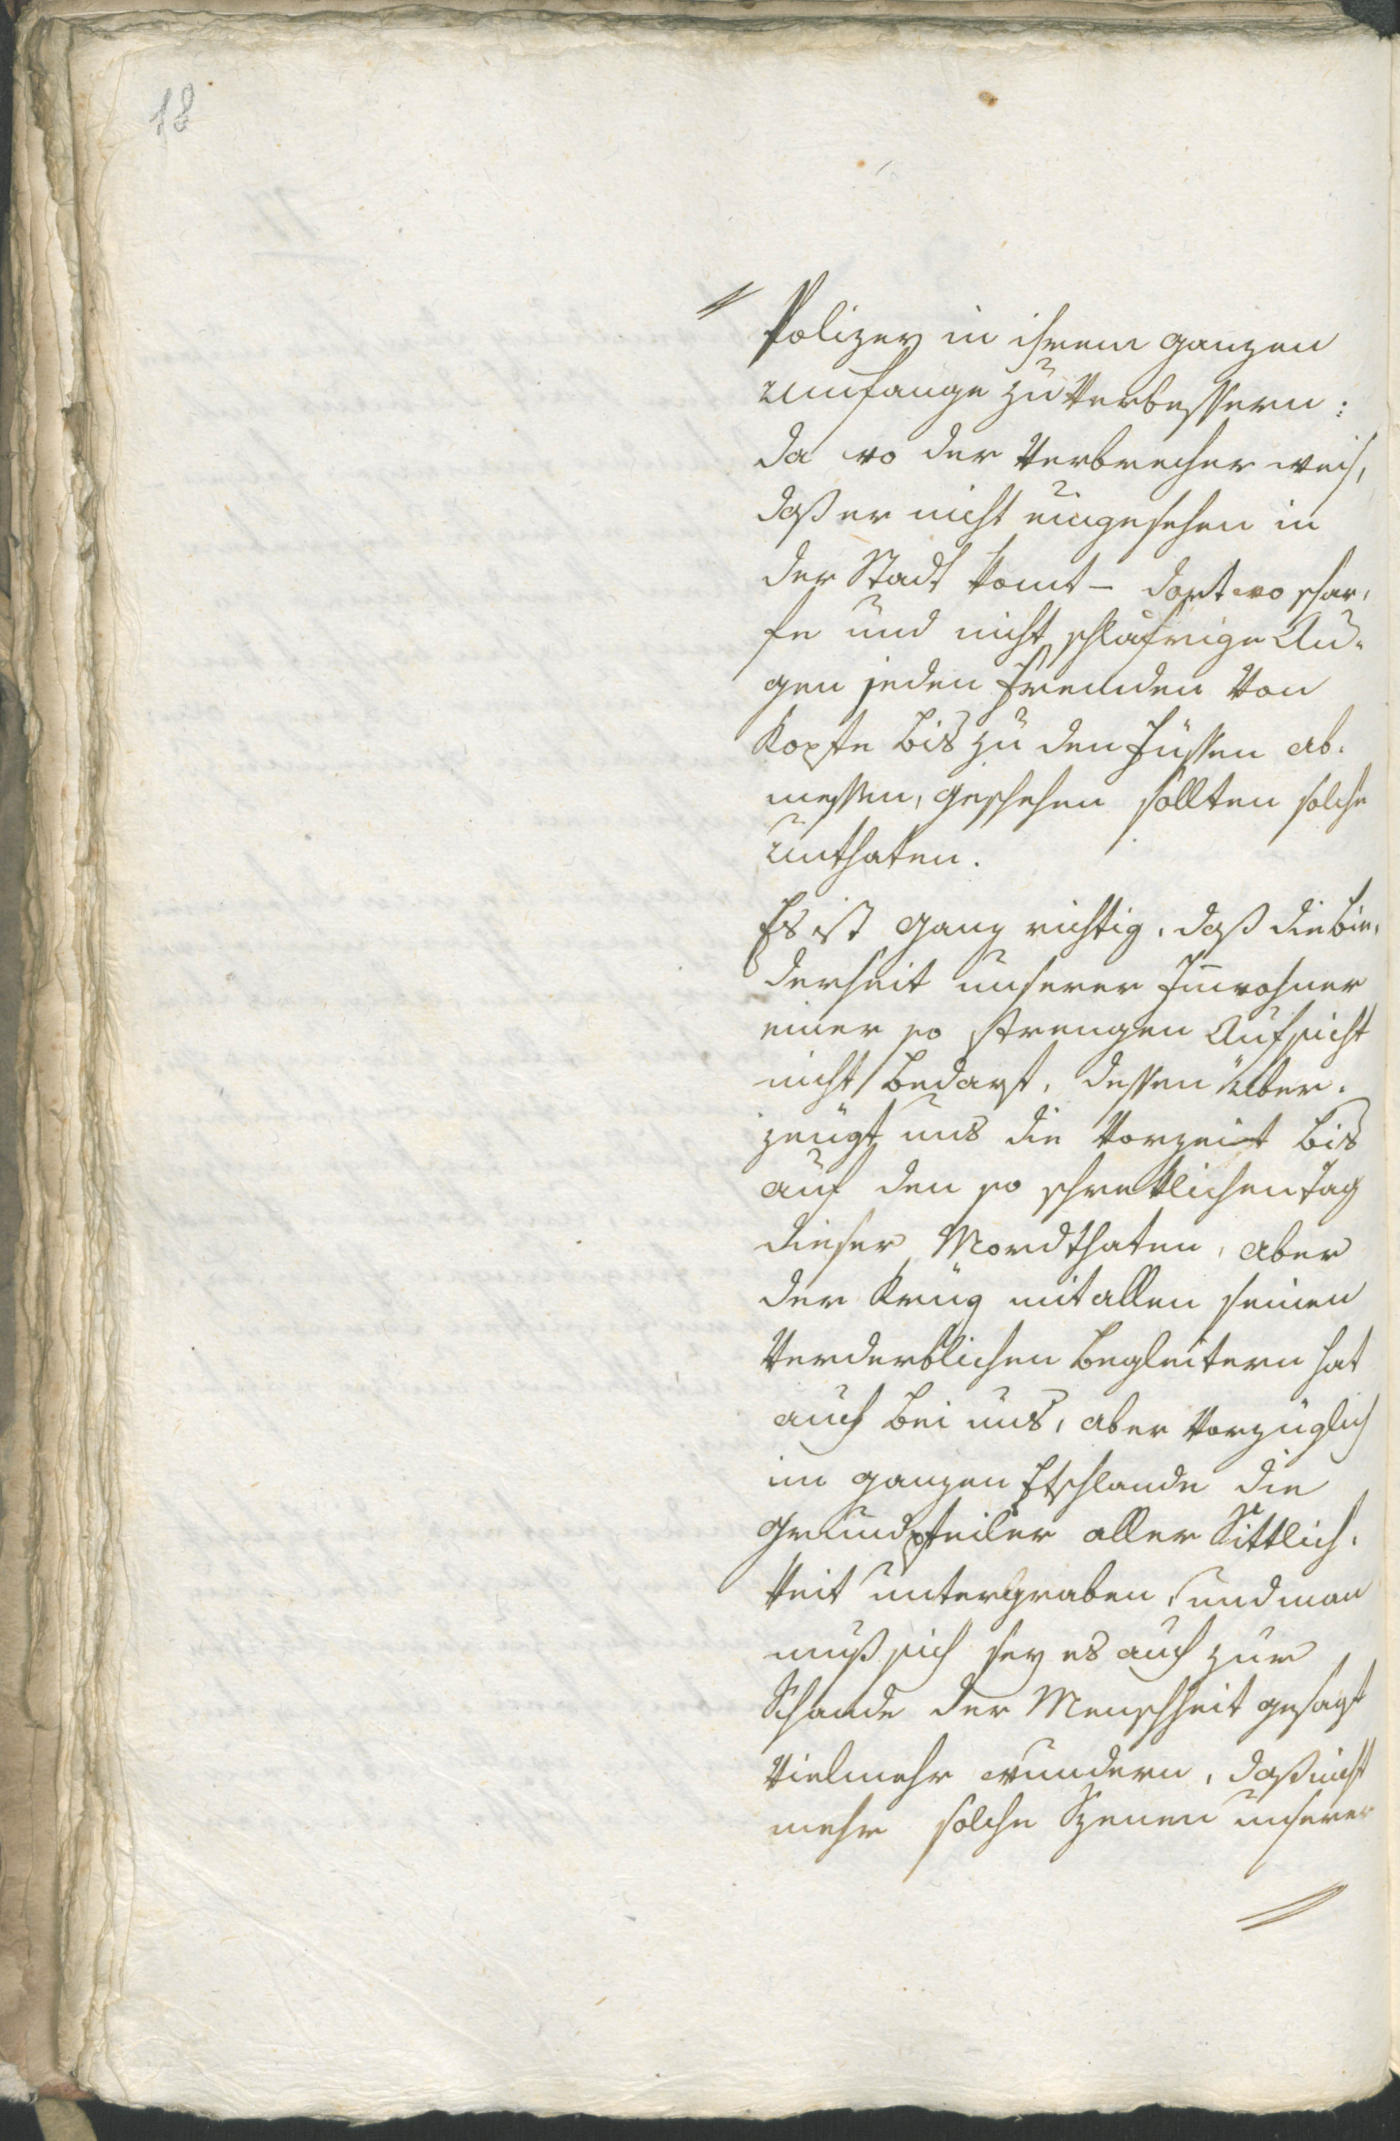 18
Polizey in ihrem ganzen
Umfange zu Verbessern:
da wo der Verbrecher weis,
daß er nicht eingesehen in
der Stadt komt – dort wo schar,
fe und nicht schläfrige Au,
gen jeden Fremden Von
Kopfe bis zu den Füssen ab,
messen, geschehen sollten solche
Unthaten.
Es ist ganz richtig, daß die Bie,
derheit unserer Inwohner
einer so strengen Aufsicht
nicht bedarf, dessen über,
zeugt uns die Vorzeit bis
auf den so schreklichen Tag
dieser Mordthaten, aber
der Krieg mit allen seinen
Verderblichen Begleitern hat
auch bei uns, aber Vorzüglich
im ganzen Etschlande die
Grundpfeiler aller Sittlich,
keit untergraben, und man
muß sich sey es auch zur
Schande der Menschheit gesagt
Vielmehr wundern, daß nicht
mehr solche Szenen unserer